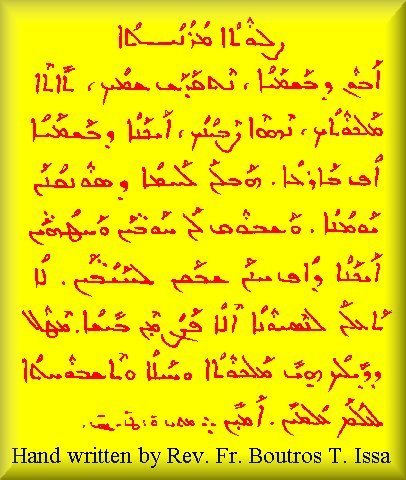 ܨܠܘܬܐ ܡܪܢܝܬܐ
ܐܒܘܢ ܕܒܫܡܝܐ، ܢܬܩܕܫ ܫܡܟ، ܬܐܬܐ
ܡܠܟܘܬܟ، ܢܗܘܐ ܨܒܝܢܟ، ܐܝܟܢܐ ܕܒܫܡܝܐ
ܐܦ ܒܐܪܥܐ. ܗܒ ܠܢ ܠܚܡܐ ܕܣܘܢܩܢܢ
ܝܘܡܢܐ. ܘܫܒܘܩ ܠܢ ܚܘܒܝܢ ܘܚܛܗܝܢ
ܐܝܟܢܐ ܕܐܦ ܚܢܢ ܫܒܩܢ ܠܚܝܒܝܢ. ܠܐ
ܬܥܠܢ ܠܢܣܝܘܢܐ ܐܠܐ ܦܨܢ ܡܢ ܒܝܫܐ. ܡܛܠ
ܕܕܝܠܟ ܗܝ ܡܠܟܘܬܐ ܘܚܝܠܐ ܘܬܫܒܘܚܬܐ
ܠܥܠܡ ܥܠܡܝܢ. ܐܡܝܢ
Hand written by Rev. Fr. Boutros T. Issa